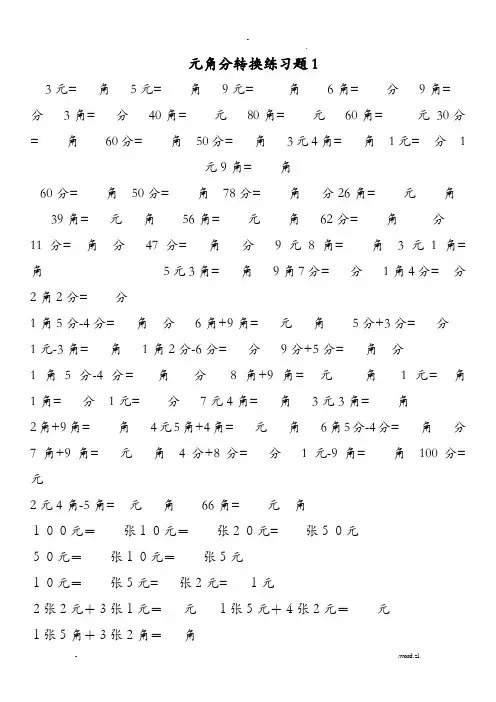 -
.
元角分转换练习题1
3元= 角 5元= 角 9元= 角 6角= 分 9角=
分 3角= 分 40角= 元 80角= 元 60角= 元 30分
= 角 60分= 角 50分= 角 3元4角= 角 1元= 分 1
元9角= 角
60分= 角 50分= 角 78分= 角 分26角= 元 角
39角= 元 角 56角= 元 角 62分= 角 分
11分= 角 分 47分= 角 分 9元8角= 角 3元1角=
角 5元3角= 角 9角7分= 分 1角4分= 分
2角2分= 分
1角5分-4分= 角 分 6角+9角= 元 角 5分+3分= 分
1元-3角= 角 1角2分-6分= 分 9分+5分= 角 分
1角5分-4分= 角 分 8角+9角= 元 角 1元= 角
1角= 分 1元= 分 7元4角= 角 3元3角= 角
2角+9角= 角 4元5角+4角= 元 角 6角5分-4分= 角 分
7角+9角= 元 角 4分+8分= 分 1元-9角= 角 100分=
元
2元4角-5角= 元 角 66角= 元 角
１００元＝ 张１０元＝ 张２０元= 张５０元
５０元＝ 张１０元＝ 张５元
１０元＝ 张５元= 张２元= 1元
２张２元＋３张１元＝ 元 １张５元＋４张２元＝ 元
１张５角＋３张２角＝ 角
- .word.zl.